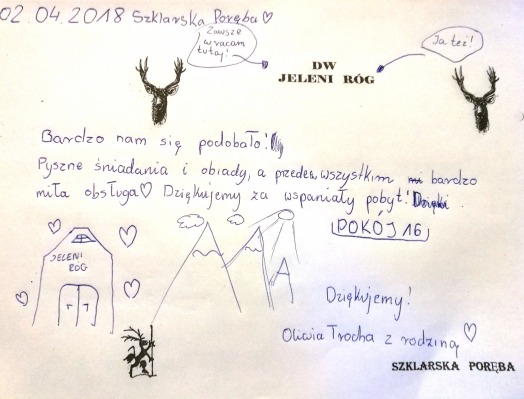 02.04.2018 Szklarska Poręba
Zawsze
wracam
tutaj!
Ja też!
DW
JELENI RÓG
Bardzo nam się podobało!
Pyszne śniadania i obiady, a przede wszystkim bardzo
miła obsługa Dziękujemy za wspaniały pobyt!
POKÓJ 16
JELENI
RÓG
Dziękujemy!
Oliwia Trocha z rodziną
SZKLARSKA PORĘBA